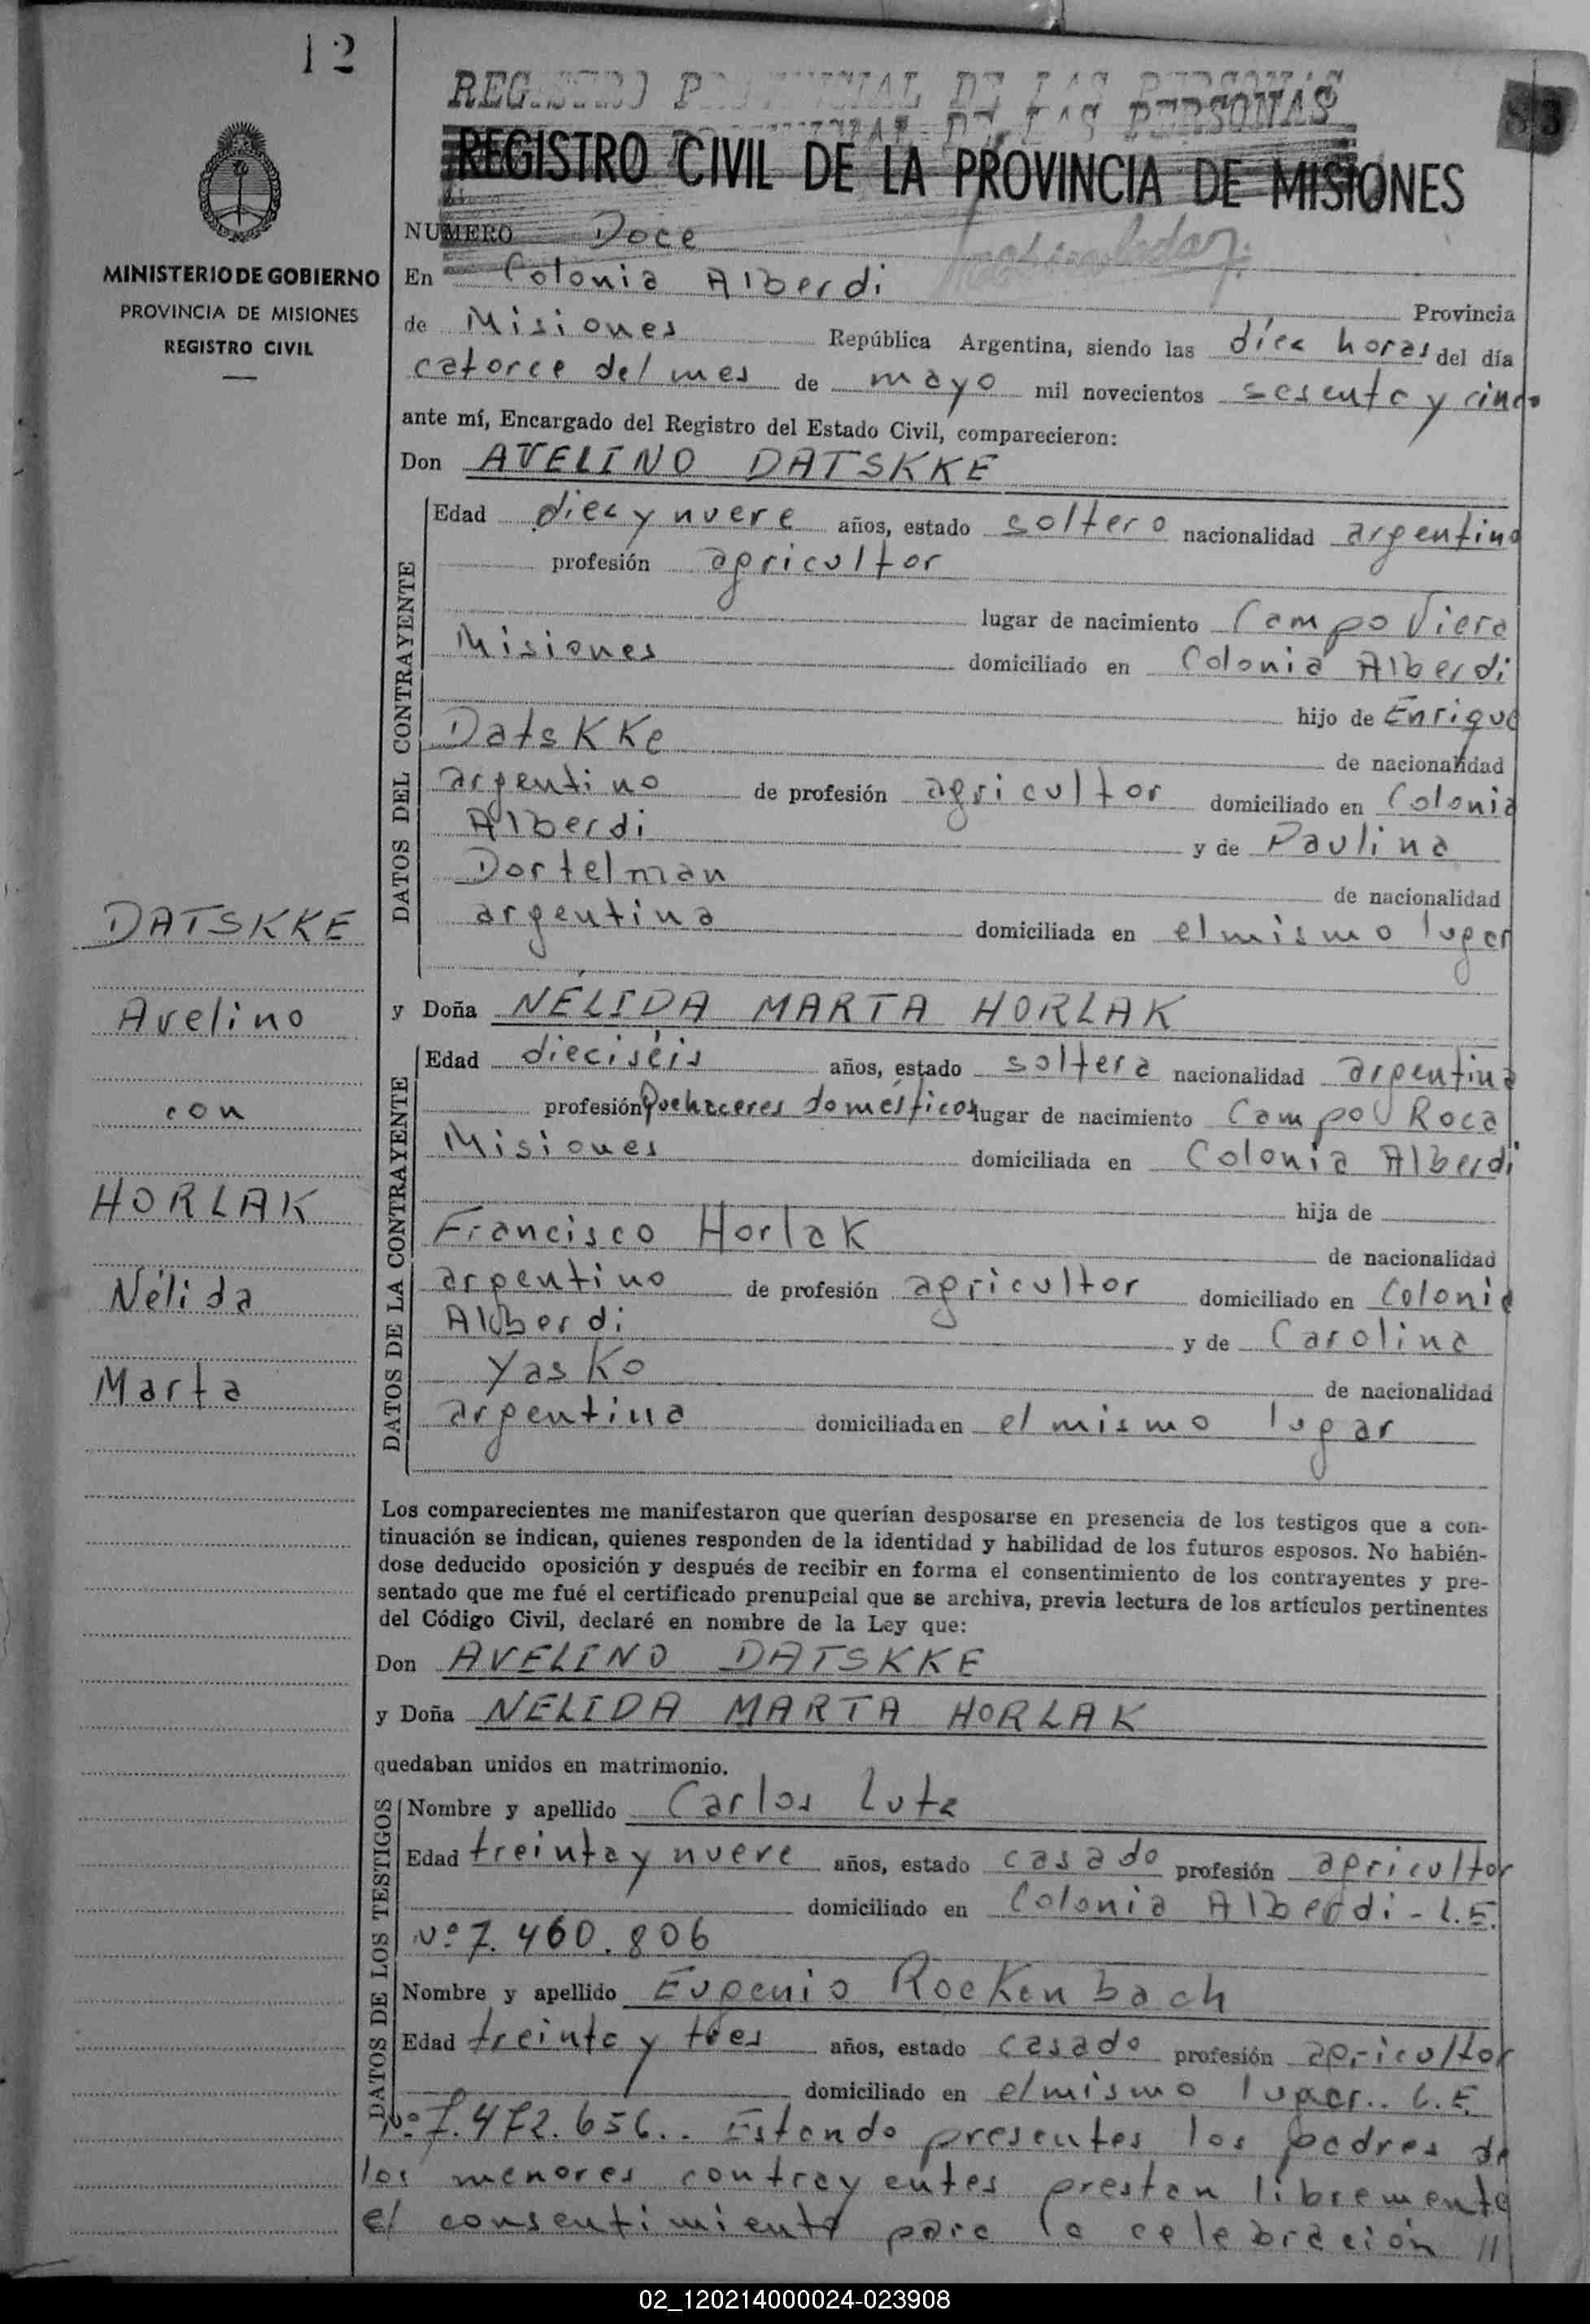 12
83
REGISTRO PROVINCIAL DE LAS PERSONAS
REGISTRO CIVIL DE LA PROVINCIA DE MISIONES
MINISTERIO DE GOBIERNO
PROVINCIA DE MISIONES
REGISTRO CIVIL
NUMERO Doce
En Colonia Alberdi Provincia
de Misiones República Argentina, siendo las diez horas del día
catorce del mes de mayo mil novecientos sesenta y cinco
ante mí, Encargado del Registro del Estado Civil, comparecieron:
Don AVELINO DATSKKE
DATOS DEL CONTRAYENTE
Edad diez y nueve años, estado soltero nacionalidad argentino
profesión agricultor
lugar de nacimiento Campo Viera
Misiones domiciliado en Colonia Alberdi
hijo de Enrique
Datskke de nacionalidad
argentino de profesión agricultor domiciliado en Colonia
Alberdi y de Paulina
Dortelman de nacionalidad
argentina domiciliada en el mismo lugar
DATSKKE
Avelino
con
HORLAK
Nélida
Marta
y Doña NÉLIDA MARTA HORLAK
DATOS DE LA CONTRAYENTE
Edad dieciséis años, estado soltera nacionalidad argentina
profesión Quehaceres domésticos lugar de nacimiento Campo Roca
Misiones domiciliada en Colonia Alberdi
hija de
Francisco Horlak de nacionalidad
argentino de profesión agricultor domiciliado en Colonia
Alberdi y de Carolina
Yasko de nacionalidad
argentina domiciliada en el mismo lugar
Los comparecientes me manifestaron que querían desposarse en presencia de los testigos que a con-
tinuación se indican, quienes responden de la identidad y habilidad de los futuros esposos. No habién-
dose deducido oposición y después de recibir en forma el consentimiento de los contrayentes y pre-
sentado que me fué el certificado prenupcial que se archiva, previa lectura de los artículos pertinentes
del Código Civil, declaré en nombre de la Ley que:
Don AVELINO DATSKKE
y Doña NELIDA MARTA HORLAK
quedaban unidos en matrimonio.
DATOS DE LOS TESTIGOS
Nombre y apellido Carlos Lutz
Edad treinta y nueve años, estado casado profesión agricultor
domiciliado en Colonia Alberdi - L.E.
Nº 7.460.806
Nombre y apellido Eugenio Rockenbach
Edad treinta y tres años, estado casado profesión agricultor
domiciliado en el mismo lugar.. L.E.
Nº 7.472.656.. Estando presentes los padres de
los menores contrayentes prestan libremente
el consentimiento para la celebración //
02_120214000024-023908